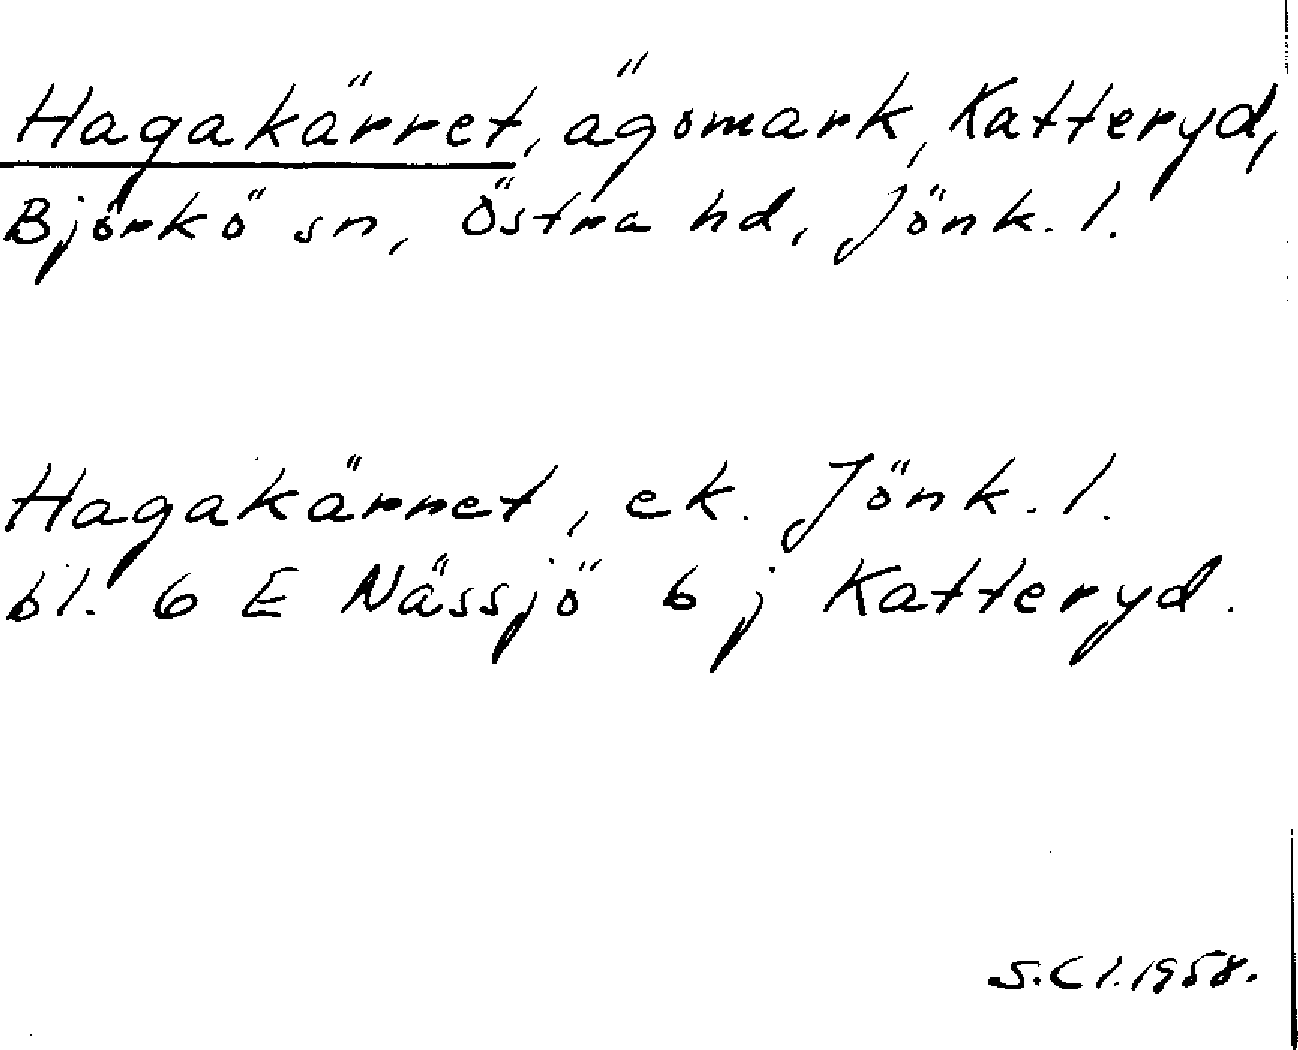 Hagakärret, ägomark, Katteryd,
Björkö sn, Östra hd, Jönk. l.
Hagakärret, ek. Jönk. l.
bl. 6 E Nässjö 6 j Katteryd.
S. Cl. 1958.